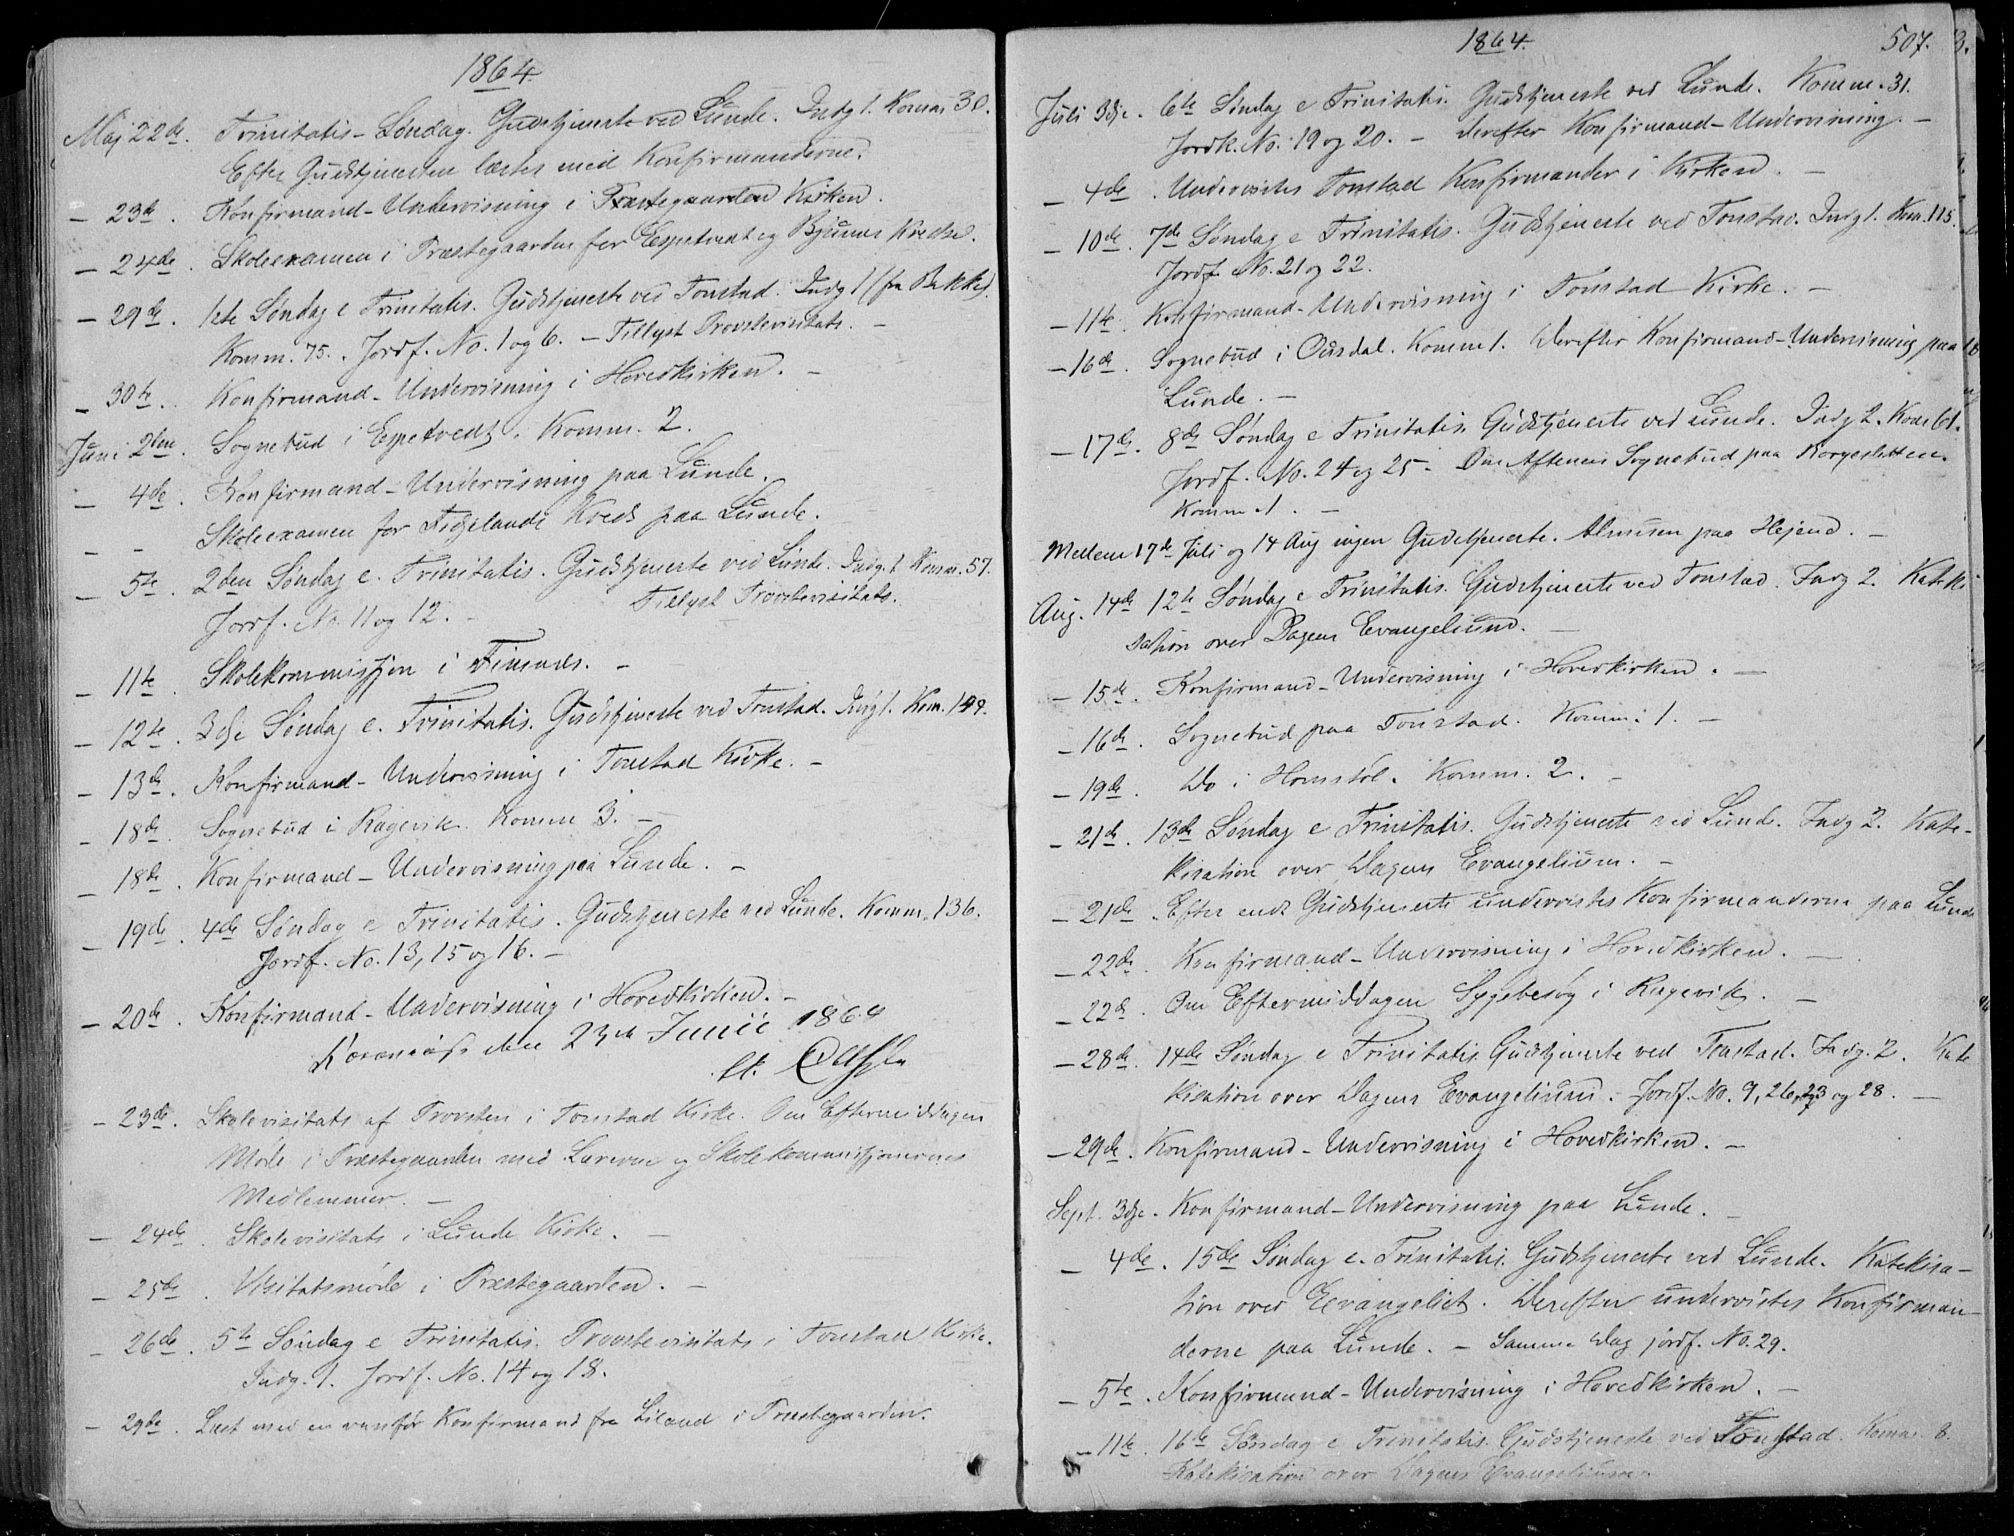 1864.
Maj 22de. Trinitatis-Søndag. Gudstjeneste ved Lunde. Indg 1. Komm 30.
Efter Gudstjenesten læstes med Konfirmanderne.
- 23de. Konfirmand-Undervisning i Kirken.
- 24de. Skoleexamen i Præstegaarden for Espetveit og Bjunes Kredse.
- 29de. 1ste Søndag e Trinitatis. Gudstjeneste ved Tonstad. Indg 1 (fra Bakke).
Komm. 75. Jordf. No. 1 og 6. - Tillyst Provstevisitats. -
- 30te. Konfirmand-Undervisning i Hovedkirken. -
Juni 2den. Sognebud i Espetvedt. Komm. 2.
- 4de. Konfirmand-Undervisning paa Lunde.
- - Skoleexamen for Fidjelands Kreds paa Lunde.
- 5te. 2den Søndag e. Trinitatis. Gudstjeneste ved Lunde. Indg. 1 Komm. 57.
Jordf. No. 11 og 12. - Tillyst Provstevisitats.
- 11te. Skolekommisjon i -
- 12te. 3dje Søndag e. Trinitatis. Gudstjeneste ved Tonstad. Indg 1. Kom. 149.
- 13de. Konfirmand-Undervisning i Tonstad Kirke. -
- 18de. Sognebud i Ragevik. Komm 3. -
- 18de. Konfirmand-Undervisning paa Lunde. -
- 19de. 4de Søndag e Trinitatis. Gudstjeneste ved Lunde. Komm. 136.
Jordf. No. 13, 15 og 16. -
- 20de. Konfirmand-Undervisning i Hovedkirken. -
den 23de Junii 1864
- 23de. Skolevisitats af Provsten i Tonstad Kirke. Om Eftermiddagen
Møde i Præstegaarden med Lærerne og Skolekommissjonernes
Medlemmer. -
- 24de. Skolevisitats i Lunde Kirke. -
- 25de. Visitatsmøde i Præstegaarden. -
- 26de. 5te Søndag e Trinitatis. Provstevisitats i Tonstad Kirke.
Indg. 1. Jordf. No. 14 og 18.
- 29de. Læst med en vanfør Konfirmand fra Liland i Præstegaarden.
1864. 507.
Juli 3dje. 6te Søndag e Trinitatis. Gudstjeneste ved Lunde. Komm. 31.
Jordk. No. 19 og 20. - Derefter Konfirmand-Undervisning. -
- 4de. Undervistes Tonstad Konfirmander i Kirken. -
- 10de. 7de Søndag e Trinitatis. Gudstjeneste ved Tonstad. Indg 1. Kom. 115.
Jordf. No. 21 og 22.
- 11te. Konfirmand-Undervisning i Tonstad Kirke. -
- 16de. Sognebud i Ousdal. Komm 1. Derefter Konfirmand-Undervisning paa
Lunde. -
- 17de. 8de Søndag e Trinitatis. Gudstjeneste ved Lunde. Indg 2. Kom 61.
Jordf. No. 24 og 25 - Om Aftenen Sognebud paa
Komm 1. -
Mellem 17de Juli og 14 Aug ingen Gudstjeneste. Almuen paa Hejene. -
Aug. 14de 12te Søndag e Trinitatis. Gudstjeneste ved Tonstad. Indg 2. Kateki
sation over Dagens Evangelium. -
- 15de. Konfirmand-Undervisning i Hovedkirken. -
- 16de. Sognebud paa Tonstad. Komm: 1. -
- 19de. Do i Homstøl. Komm. 2. -
- 21de. 13de Søndag e Trinitatis. Gudstjeneste ved Lunde. Indg 2. Kate-
kisation over Dagens Evangelium. -
- 21de. Efter endt Gudstjeneste undervistes Konfirmanderne paa Lunde
- 22de. Konfirmand-Undervisning i Hovedkirken. -
- 22de. Om Eftermiddagen Sygebesøg i Ragevik. -
- 28de. 14de Søndag e Trinitatis. Gudstjeneste ved Tonstad. Indg. 2. Kate
kisation over Dagens Evangelium. Jordf. No. 9, 26, 23 og 28. -
- 29de. Konfirmand-Undervisning i Hovedkirken. -
Sept. 3dje. Konfirmand-Undervisning paa Lunde. -
- 4de. 15de Søndag e. Trinitatis. Gudstjeneste ved Lunde. Katekisa-
tion over Evangeliet. Derefter undervistes Konfirman-
derne paa Lunde. - Samme Dag jordf. No. 29.
- 5te. Konfirmand-Undervisning i Hovedkirken. -
- 11te. 16de Søndag e Trinitatis. Gudstjeneste ved Tonstad. Komm. 8.
Katekisation over Dagens Evangelium.